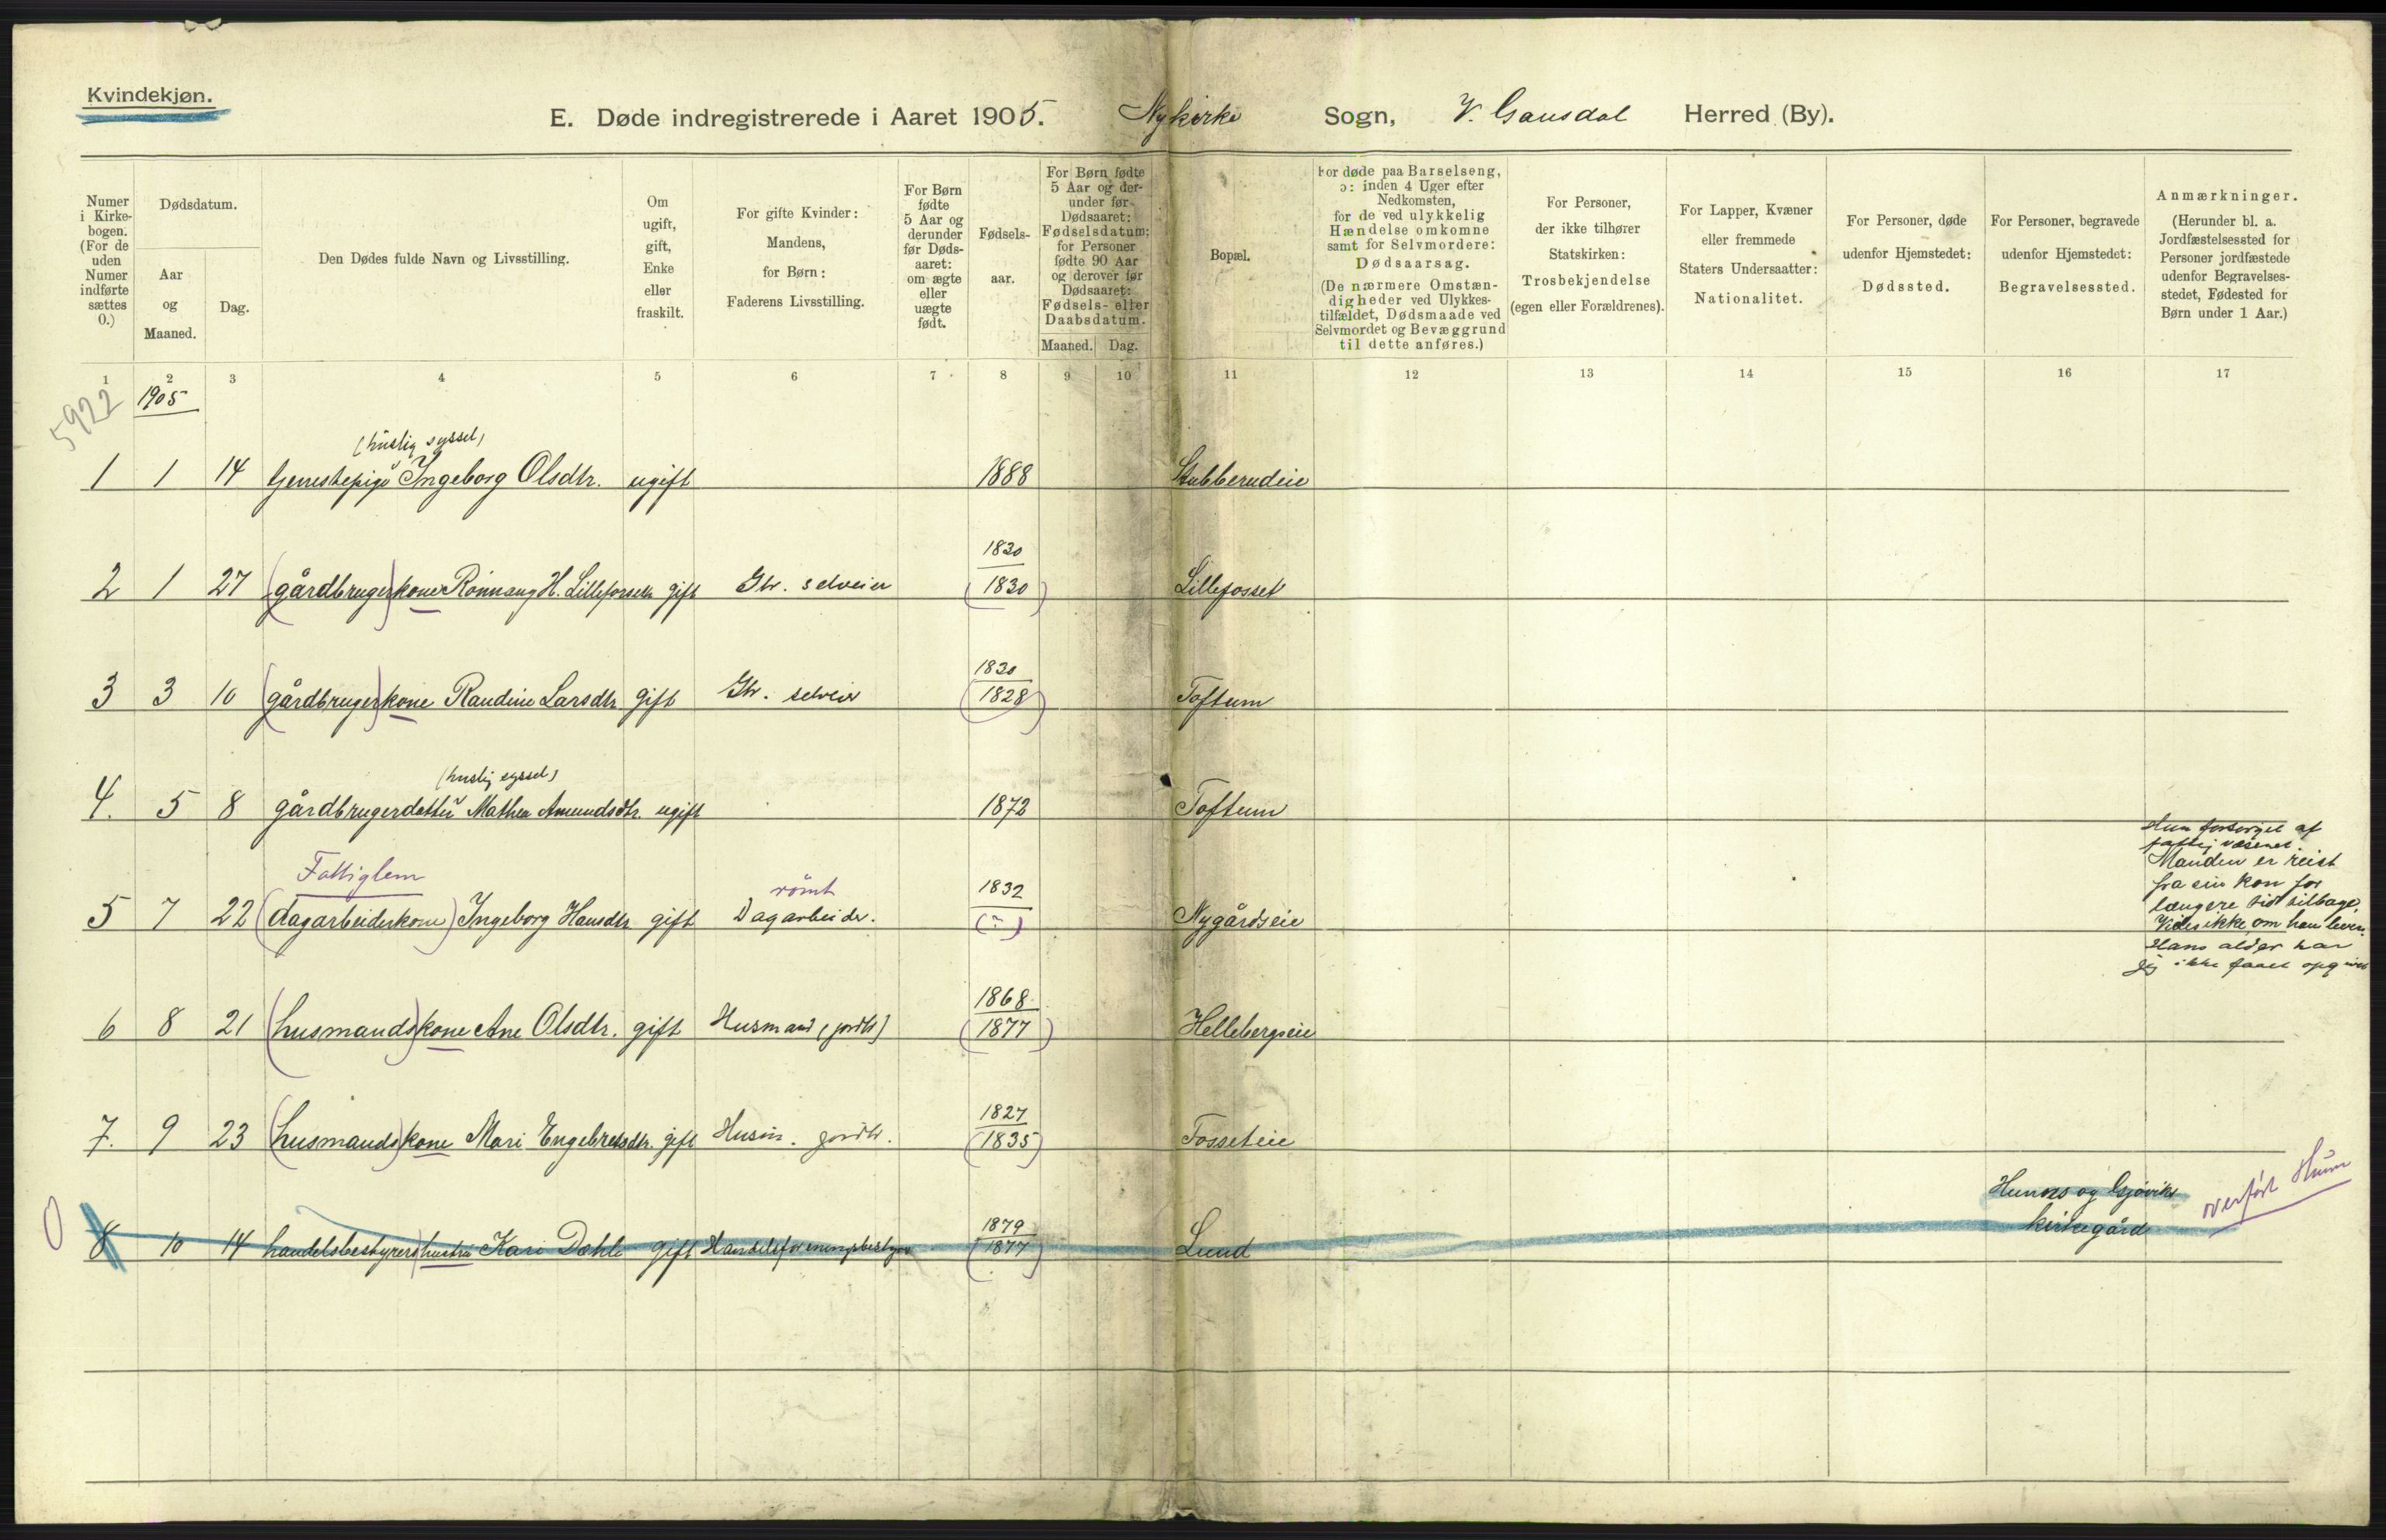 Kvindekjøn.
E. Døde indregistrerede i Aaret 1905. Nykirke Sogn, V. Gausdal Herred (By).
Numer i Kirkebogen. (For de uden Numer indførte sættes 0.)
Dødsdatum.
Aar og Maaned.
Dag.
Den Dødes fulde Navn og Livsstilling.
Om ugift, gift, Enke eller fraskilt.
For gifte Kvinder: Mandens, for Børn: Faderens Livsstilling.
For Børn fødte 5 Aar og derunder før Dødsaaret: om ægte eller uægte født.
Fødselsaar.
For Børn fødte 5 Aar og derunder før Dødsaaret: Fødselsdatum; for Personer fødte 90 Aar og derover før Dødsaaret: Fødsels- eller Daabsdatum.
Maaned. Dag.
Bopæl.
For døde paa Barselseng, ɔ: inden 4 Uger efter Nedkomsten, for de ved ulykkelig Hændelse omkomne samt for Selvmordere: Dødsaarsag.
(De nærmere Omstændigheder ved Ulykkestilfældet, Dødsmaade ved Selvmordet og Bevæggrund til dette anføres.)
For Personer, der ikke tilhører Statskirken: Trosbekjendelse (egen eller Forældrenes).
For Lapper, Kvæner eller fremmede Staters Undersaatter: Nationalitet.
For Personer, døde udenfor Hjemstedet: Dødssted.
For Personer, begravede udenfor Hjemstedet: Begravelsessted.
Anmærkninger. (Herunder bl. a. Jordfæstelsessted for Personer jordfæstede udenfor Begravelsesstedet, Fødested for Børn under 1 Aar.)
1 2 3 4 5 6 7 8 9 10 11 12 13 14 15 16 17
5922
1905
(huslig syssel)
1 1 14 tjenestepige Ingeborg Olsdtr. ugift 1888 Stubberudeie
1830
2 1 27 (gårdbruger)kone Rönnaug H. gift Gbr. selveier (1830) Lillefosset
1830
3 3 10 (gårdbruger)kone Randine Larsdtr gift Gbr. selveier (1828) Toftum
(huslig syssel)
4. 5 8 gårdbrugerdatter Mathea Amundsdtr. ugift 1872 Toftum
Fattiglem
römt
1832
5 7 22 (dagarbeiderkone) Ingeborg Hansdtr gift Dagarbeider. (-) Nygårdseie
Hun forsørget af
fattigvæsenet.
Manden er reist
fra sin kon for
længere tid tilbage.
Vides ikke om han lever.
Hans alder har
jeg ikke faaet opgivet
1868
6 8 21 (husmands)kone Ane Olsdtr. gift Husmand (jordbr) (1877) Hellebergseie
1827
7. 9 23 (husmands)kone Mari Engebretsdtr. gift Husm. jordbr. (1835) Fosseteie
0
1879
8 10 14 handelsbestyrers)hustru Kari Dæhli gift Handelsforeningsbestyrer (1877) Lund
Hunns og Gjøviks
kirkegård
overført Hunn